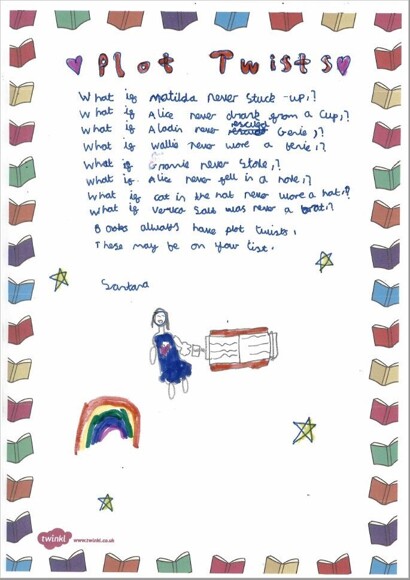 Plot Twists
What if matilda never stuck-up,?
What if Alice never drank from a cup,?
What if Aladin never rescued Genie,?
What if Wallie never wore a benie,?
What if Grannie never stole,?
What if Alice never fell in a hole,?
What if cat in the hat never wore a hat,?
What if Veruca Salt was never a brat,?
Books always have plot twists,
These may be on your list.
Santana
twinkl www.twinkl.co.uk